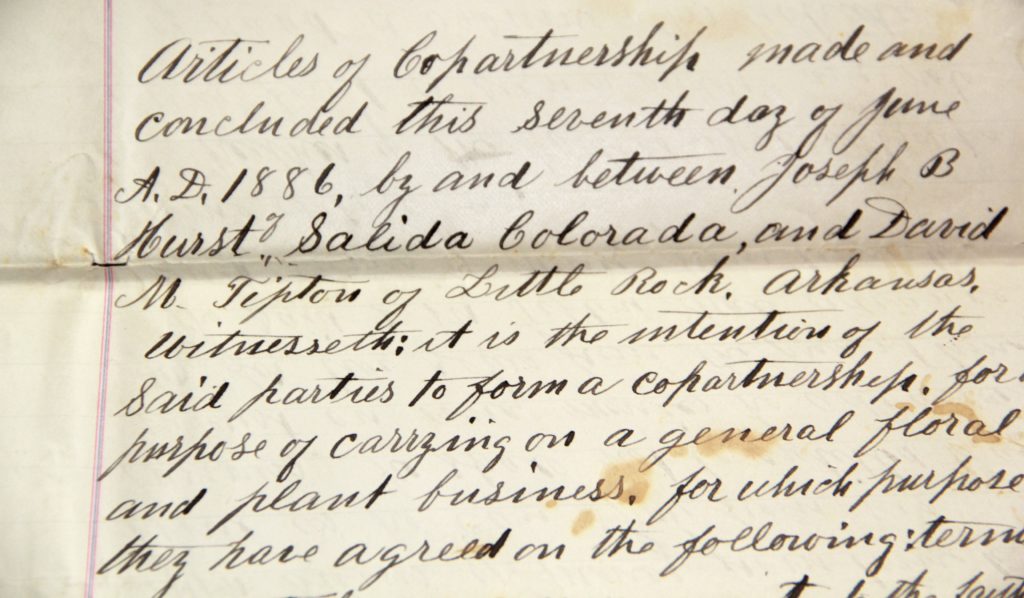 Articles of Copartnership made and
concluded this seventh day of June
A.D. 1886, by and between Joseph B
Hurst, of Salida Colorada, and David
M. Tipton of Little Rock. Arkansas.
Witnesseth: it is the intention of the
Said parties to form a copartnership. for
purpose of carrying on a general floral
and plant business. for which purpose
they have agreed on the following: term
to the